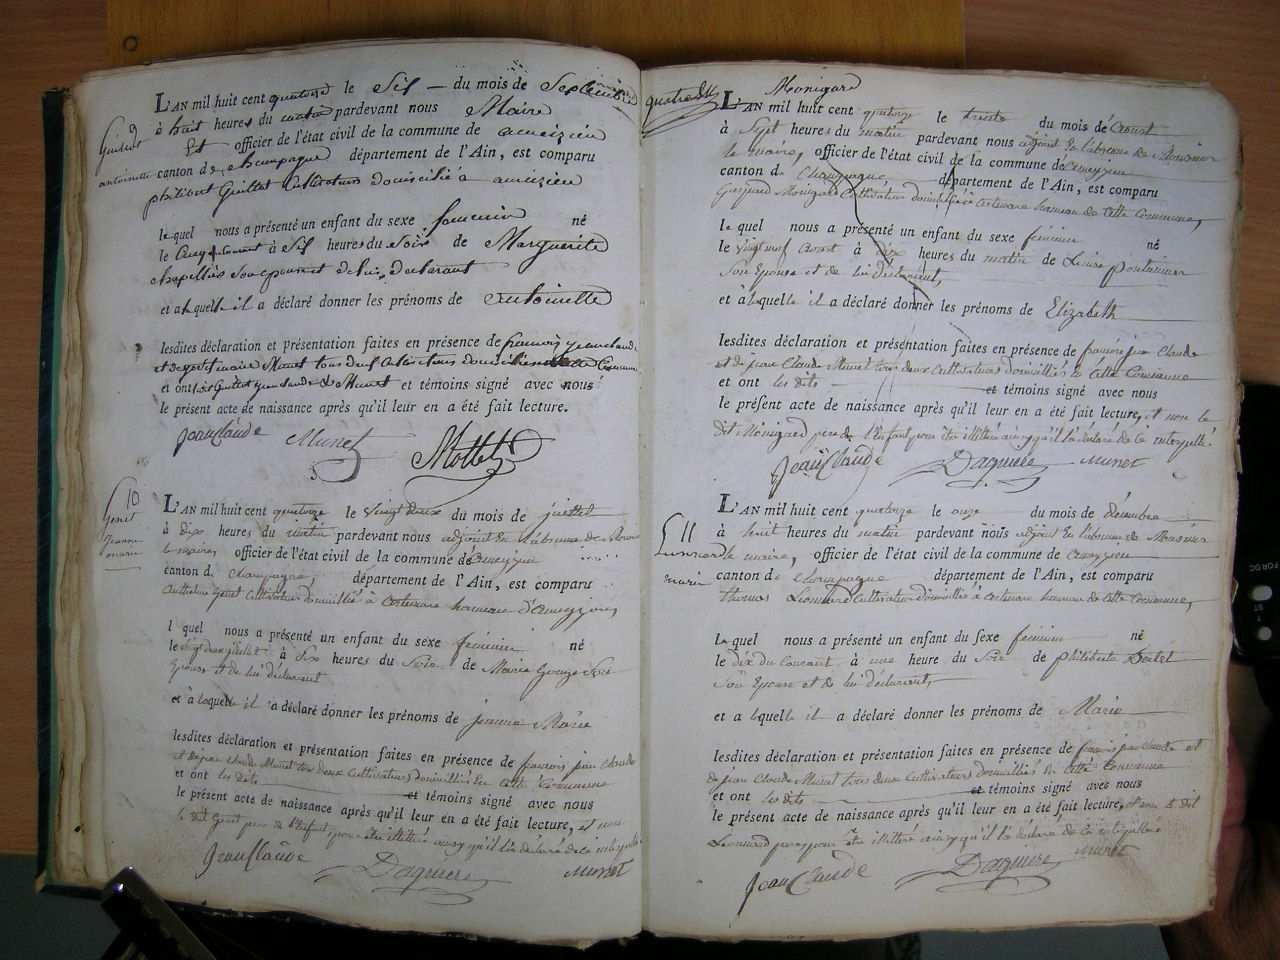 Guillet
antoinette
L'AN mil huit cent quatorze le Six du mois de Septembre
à huit heures du matin pardevant nous Maire
Et officier de l'état civil de la commune de ameizieu
canton de champagne département de l'Ain, est comparu
philibert Guillet Cultivateur domicilié à ameizieu
lequel nous a présenté un enfant du sexe femenin né
le Cinq du Courant à Six heures du Soir de Marguerite
Son epouse et de lui, declarant
et à laquelle il a déclaré donner les prénoms de antoinette
lesdites déclaration et présentation faites en présence de françois jean claude
Munet tous deux Cultivateurs domiciliés Commune
et ont Guillet jean Claude et Munet et témoins signé avec nous
le présent acte de naissance après qu'il leur en a été fait lecture.
Jean Claude Munet Mottet
10
Genet
jeanne
marie
L'AN mil huit cent quatorze le vingt deux du mois de juillet
à dix heures du matin pardevant nous adjoint en l'absence de Monsieur
le maire, officier de l'état civil de la commune de ameyzieu
canton de champagne, département de l'Ain, est comparu
Anthelme Genet Cultivateur domicilié à Artemare hameau d'ameyzieu,
lequel nous a présenté un enfant du sexe féminin né
le vingt deux juillet à Six heures du Soir de Marie
Epouse et de lui déclarant
et à laquelle il a déclaré donner les prénoms de jeanne Marie
lesdites déclaration et présentation faites en présence de françois jean claude
et de jean claude Munet tous deux Cultivateurs domiciliés en cette Commune
et ont les dits et témoins signé avec nous
le présent acte de naissance après qu'il leur en a été fait lecture, et non
le dit Genet pere de l'Enfant pour être illitéré ainsy qu'il l'a déclaré de ce interpellé
Jean Claude Daguiere Munet
Monigard
L'AN mil huit cent quatorze le trente du mois d'Aoust
à Sept heures du matin pardevant nous adjoint en l'absence de Monsieur
le maire, officier de l'état civil de la commune d'ameyzieu
canton de Champagne département de l'Ain, est comparu
Gaspard Monigard Cultivateur domicilié à Artemare hameau de cette Commune,
lequel nous a présenté un enfant du sexe féminin né
le vingt neuf Aoust à dix heures du matin de Louise
Son Epouse et de lui déclarant,
et à laquelle il a déclaré donner les prénoms de Elizabeth
lesdites déclaration et présentation faites en présence de françois jean Claude
et de jean Claude Munet tous deux Cultivateurs domiciliés en cette Commune
et ont les dits et témoins signé avec nous
le présent acte de naissance après qu'il leur en a été fait lecture, et non le
dit Monigard pere de l'Enfant pour être illitéré ainsy qu'il l'a déclaré de ce interpellé.
Jean Claude Daguiere Munet
11
Leonnard
marie
L'AN mil huit cent quatorze le onze du mois de décembre
à huit heures du matin pardevant nous adjoint en l'absence de Monsieur
le maire, officier de l'état civil de la commune de ameyzieu
canton de champagne département de l'Ain, est comparu
thomas Leonnard Cultivateur domicilié à Artemare hameau de cette Commune,
lequel nous a présenté un enfant du sexe féminin né
le dix du Courant à une heure du Soir de philiberte
Son Epouse et de lui déclarant,
et à laquelle il a déclaré donner les prénoms de Marie
lesdites déclaration et présentation faites en présence de françois jean claude et
de jean Claude Munet tous deux Cultivateurs domiciliés en cette Commune
et ont les dits et témoins signé avec nous
le présent acte de naissance après qu'il leur en a été fait lecture, et non le dit
Leonnard pere pour être illitéré ainsy qu'il l'a déclaré de ce interpellé
Jean Claude Daguiere Munet